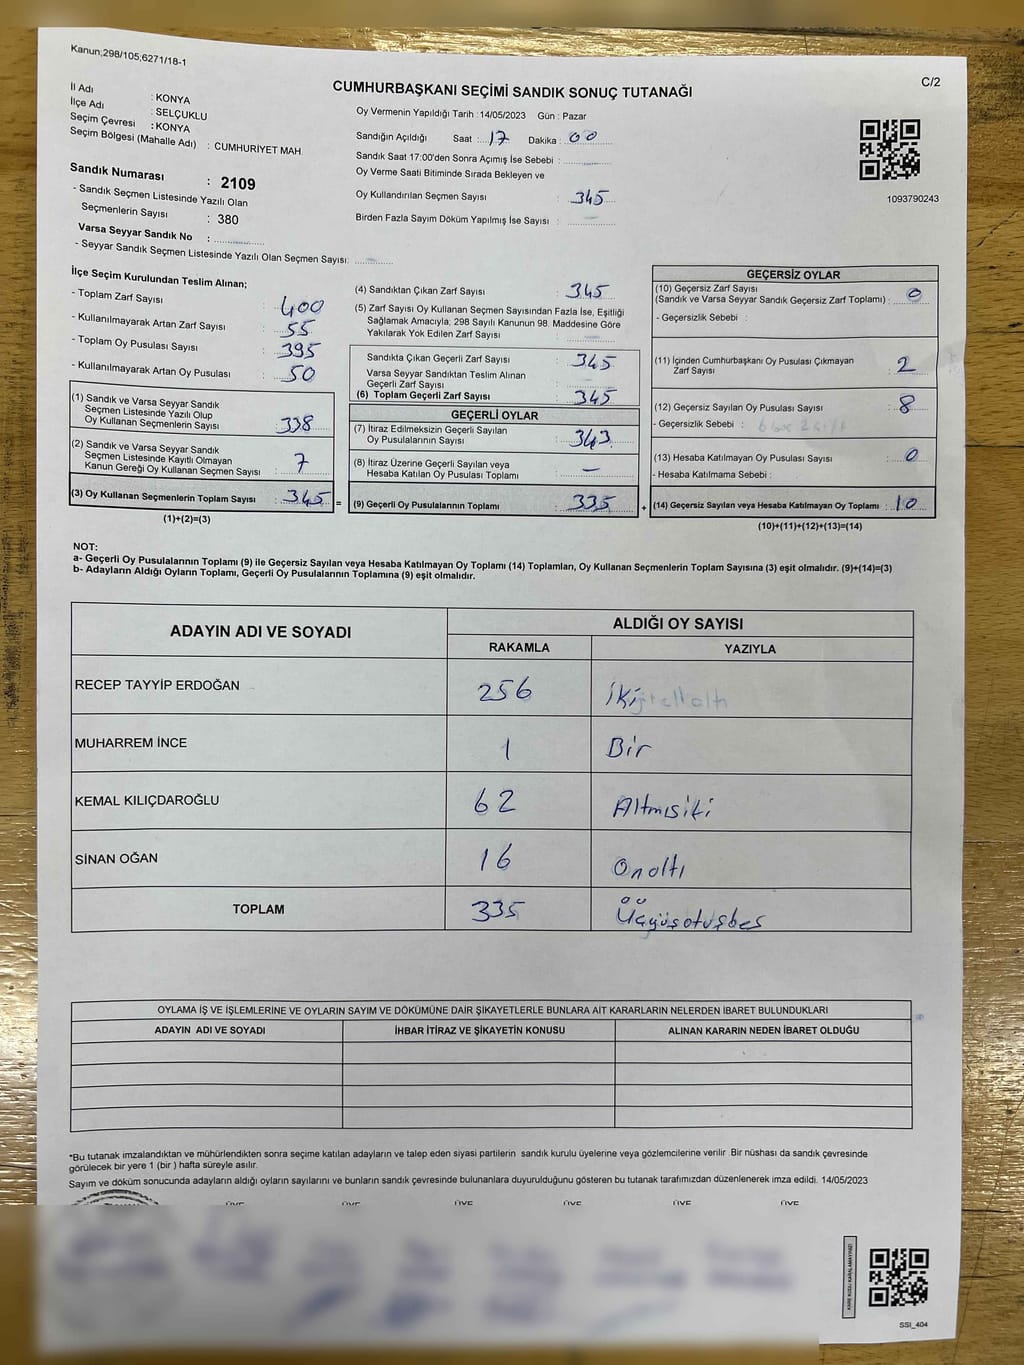 Kanun;298/105;6271/18-1
C/2
CUMHURBAŞKANI SEÇİMİ SANDIK SONUÇ TUTANAĞI
İl Adı : KONYA
İlçe Adı : SELÇUKLU
Seçim Çevresi : KONYA
Seçim Bölgesi (Mahalle Adı) : CUMHURİYET MAH.
Sandık Numarası : 2109
- Sandık Seçmen Listesinde Yazılı Olan
Seçmenlerin Sayısı : 380
Varsa Seyyar Sandık No :
- Seyyar Sandık Seçmen Listesinde Yazılı Olan Seçmen Sayısı:
Oy Vermenin Yapıldığı Tarih :14/05/2023 Gün : Pazar
Sandığın Açıldığı Saat : 17 Dakika : 00
Sandık Saat 17:00'den Sonra Açımış İse Sebebi :
Oy Verme Saati Bitiminde Sırada Bekleyen ve
Oy Kullandırılan Seçmen Sayısı : 345
Birden Fazla Sayım Döküm Yapılmış İse Sayısı : –
1093790243
İlçe Seçim Kurulundan Teslim Alınan;
- Toplam Zarf Sayısı : 400
- Kullanılmayarak Artan Zarf Sayısı : 55
- Toplam Oy Pusulası Sayısı : 395
- Kullanılmayarak Artan Oy Pusulası : 50
(1) Sandık ve Varsa Seyyar Sandık
Seçmen Listesinde Yazılı Olup
Oy Kullanan Seçmenlerin Sayısı : 338
(2) Sandık ve Varsa Seyyar Sandık
Seçmen Listesinde Kayıtlı Olmayan
Kanun Gereği Oy Kullanan Seçmen Sayısı : 7
(3) Oy Kullanan Seçmenlerin Toplam Sayısı : 345 =
(1)+(2)=(3)
(4) Sandıktan Çıkan Zarf Sayısı : 345
(5) Zarf Sayısı Oy Kullanan Seçmen Sayısından Fazla İse, Eşitliği
Sağlamak Amacıyla, 298 Sayılı Kanunun 98. Maddesine Göre
Yakılarak Yok Edilen Zarf Sayısı :
Sandıkta Çıkan Geçerli Zarf Sayısı : 345
Varsa Seyyar Sandıktan Teslim Alınan
Geçerli Zarf Sayısı :
(6) Toplam Geçerli Zarf Sayısı : 345
GEÇERLİ OYLAR
(7) İtiraz Edilmeksizin Geçerli Sayılan
Oy Pusulalarının Sayısı : 343
(8) İtiraz Üzerine Geçerli Sayılan veya
Hesaba Katılan Oy Pusulası Toplamı : –
(9) Geçerli Oy Pusulalarının Toplamı : 335 +
GEÇERSİZ OYLAR
(10) Geçersiz Zarf Sayısı
(Sandık ve Varsa Seyyar Sandık Geçersiz Zarf Toplamı) : 0
- Geçersizlik Sebebi :
(11) İçinden Cumhurbaşkanı Oy Pusulası Çıkmayan
Zarf Sayısı : 2
(12) Geçersiz Sayılan Oy Pusulası Sayısı : 8
- Geçersizlik Sebebi :
(13) Hesaba Katılmayan Oy Pusulası Sayısı : 0
- Hesaba Katılmama Sebebi :
(14) Geçersiz Sayılan veya Hesaba Katılmayan Oy Toplamı : 10
(10)+(11)+(12)+(13)=(14)
NOT:
a- Geçerli Oy Pusulalarının Toplamı (9) ile Geçersiz Sayılan veya Hesaba Katılmayan Oy Toplamı (14) Toplamları, Oy Kullanan Seçmenlerin Toplam Sayısına (3) eşit olmalıdır. (9)+(14)=(3)
b- Adayların Aldığı Oyların Toplamı, Geçerli Oy Pusulalarının Toplamına (9) eşit olmalıdır.
ADAYIN ADI VE SOYADI
ALDIĞI OY SAYISI
RAKAMLA YAZIYLA
RECEP TAYYİP ERDOĞAN 256
MUHARREM İNCE 1 Bir
KEMAL KILIÇDAROĞLU 62 Altmışiki
SİNAN OĞAN 16 Onaltı
TOPLAM 335 Üçyüzotuzbeş
OYLAMA İŞ VE İŞLEMLERİNE VE OYLARIN SAYIM VE DÖKÜMÜNE DAİR ŞİKAYETLERLE BUNLARA AİT KARARLARIN NELERDEN İBARET BULUNDUKLARI
ADAYIN ADI VE SOYADI İHBAR İTİRAZ VE ŞİKAYETİN KONUSU ALINAN KARARIN NEDEN İBARET OLDUĞU
*Bu tutanak imzalandıktan ve mühürlendikten sonra seçime katılan adayların ve talep eden siyasi partilerin sandık kurulu üyelerine veya gözlemcilerine verilir .Bir nüshası da sandık çevresinde
görülecek bir yere 1 (bir ) hafta süreyle asılır.
Sayım ve döküm sonucunda adayların aldığı oyların sayılarını ve bunların sandık çevresinde bulunanlara duyurulduğunu gösteren bu tutanak tarafımızdan düzenlenerek imza edildi. 14/05/2023
ÜYE ÜYE ÜYE ÜYE ÜYE ÜYE
KARE KODU KARALAMAYINIZ!
SSI_404